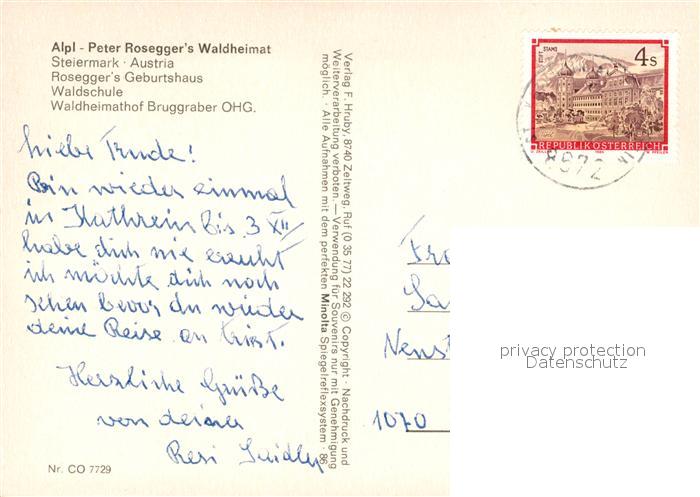 Alpl - Peter Rosegger's Waldheimat
Steiermark · Austria
Rosegger's Geburtshaus
Waldschule
Waldheimathof Bruggraber OHG.
Liebe Trude!
Bin wieder einmal
in Kathrein bis 3 XII
habe dich nie ereicht
ich möchte dich noch
sehen bevor du wieder
deine Reise an trist.
Herzliche Grüße
von deiner
Resi
Nr. CO 7729
Verlag F. Hruby, 8740 Zeltweg, Ruf (0 35 77) 22 292 © Copyright · Nachdruck und
Weiterverarbeitung verboten. — Verwendung für Souvenirs nur mit Genehmigung
möglich. · Alle Aufnahmen mit dem perfekten Minolta Spiegelreflexsystem · 86
STIFT STAMS
4 S
REPUBLIK ÖSTERREICH
8972
Nenst
1070
privacy protection
Datenschutz